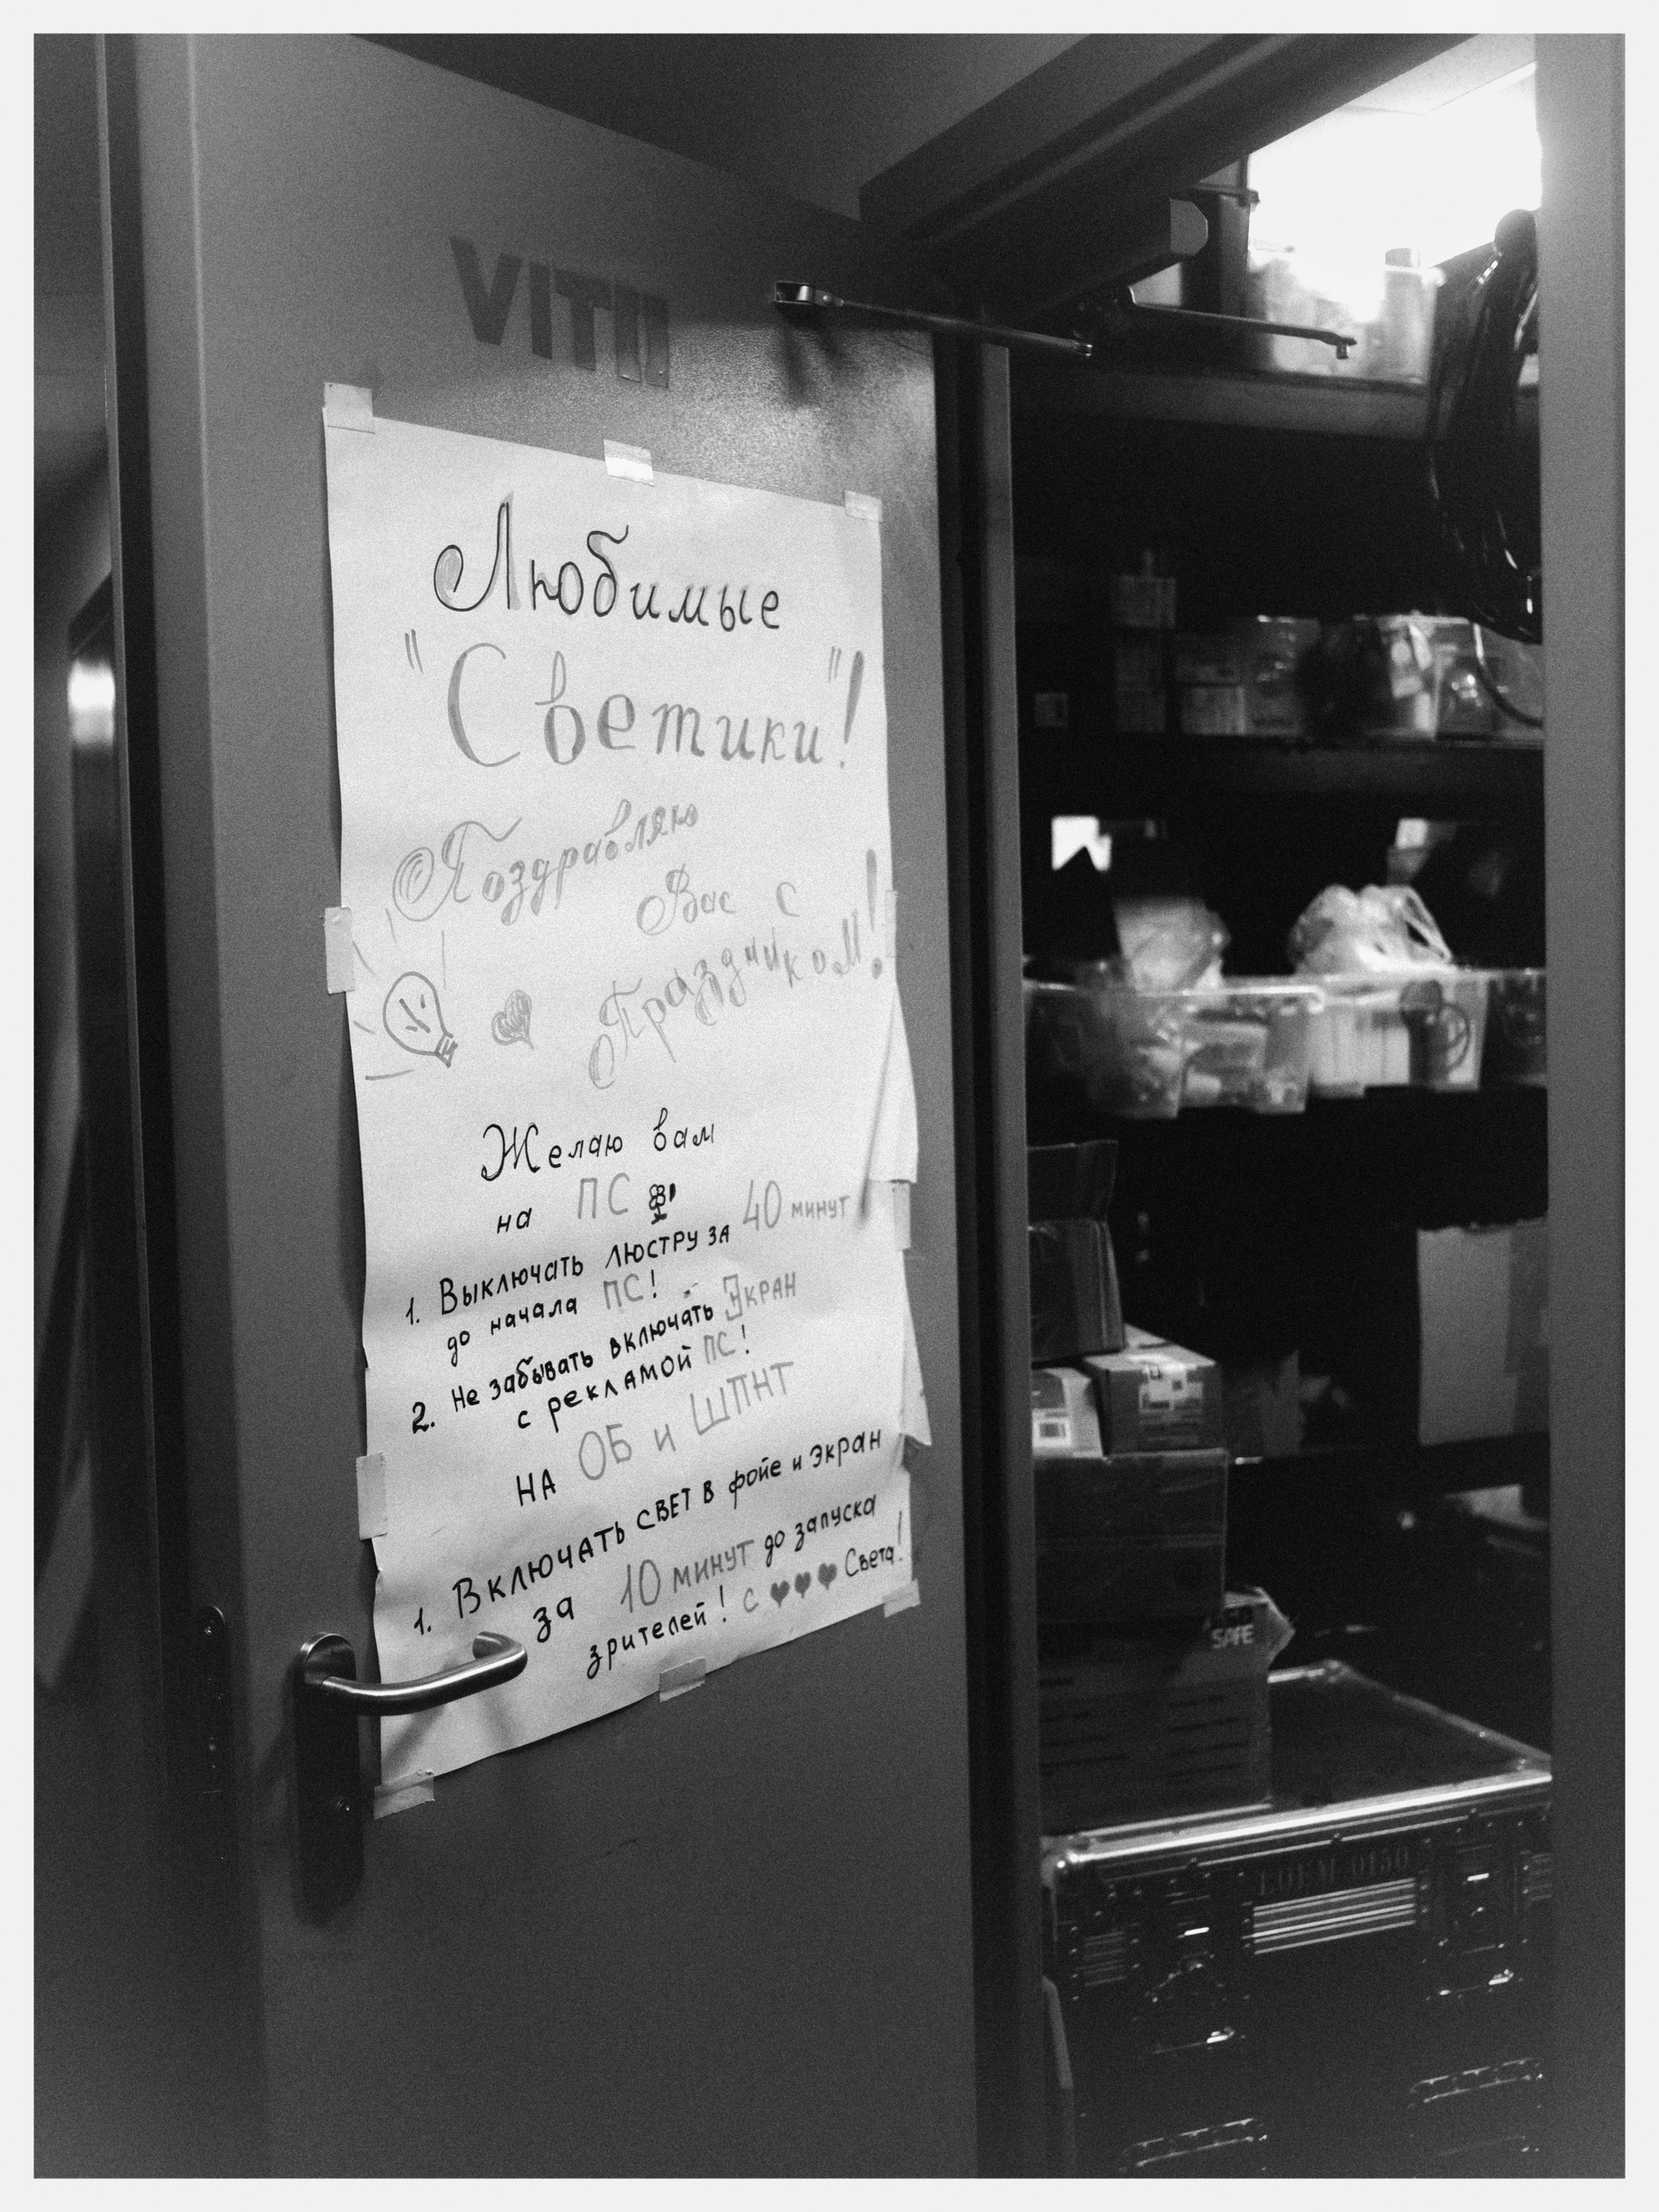 VITII
Любимые
"Светики"!
Поздравляю
Вас с
Праздником!
Желаю вам
на ПС
1. Выключать люстру за 40 минут
до начала ПС!
2. Не забывать включать Экран
с рекламой ПС!
НА ОБ и ШПНТ
1. Включать свет в фойе и экран
за 10 минут до запуска
зрителей! С ♥♥♥ Света!
SAFE